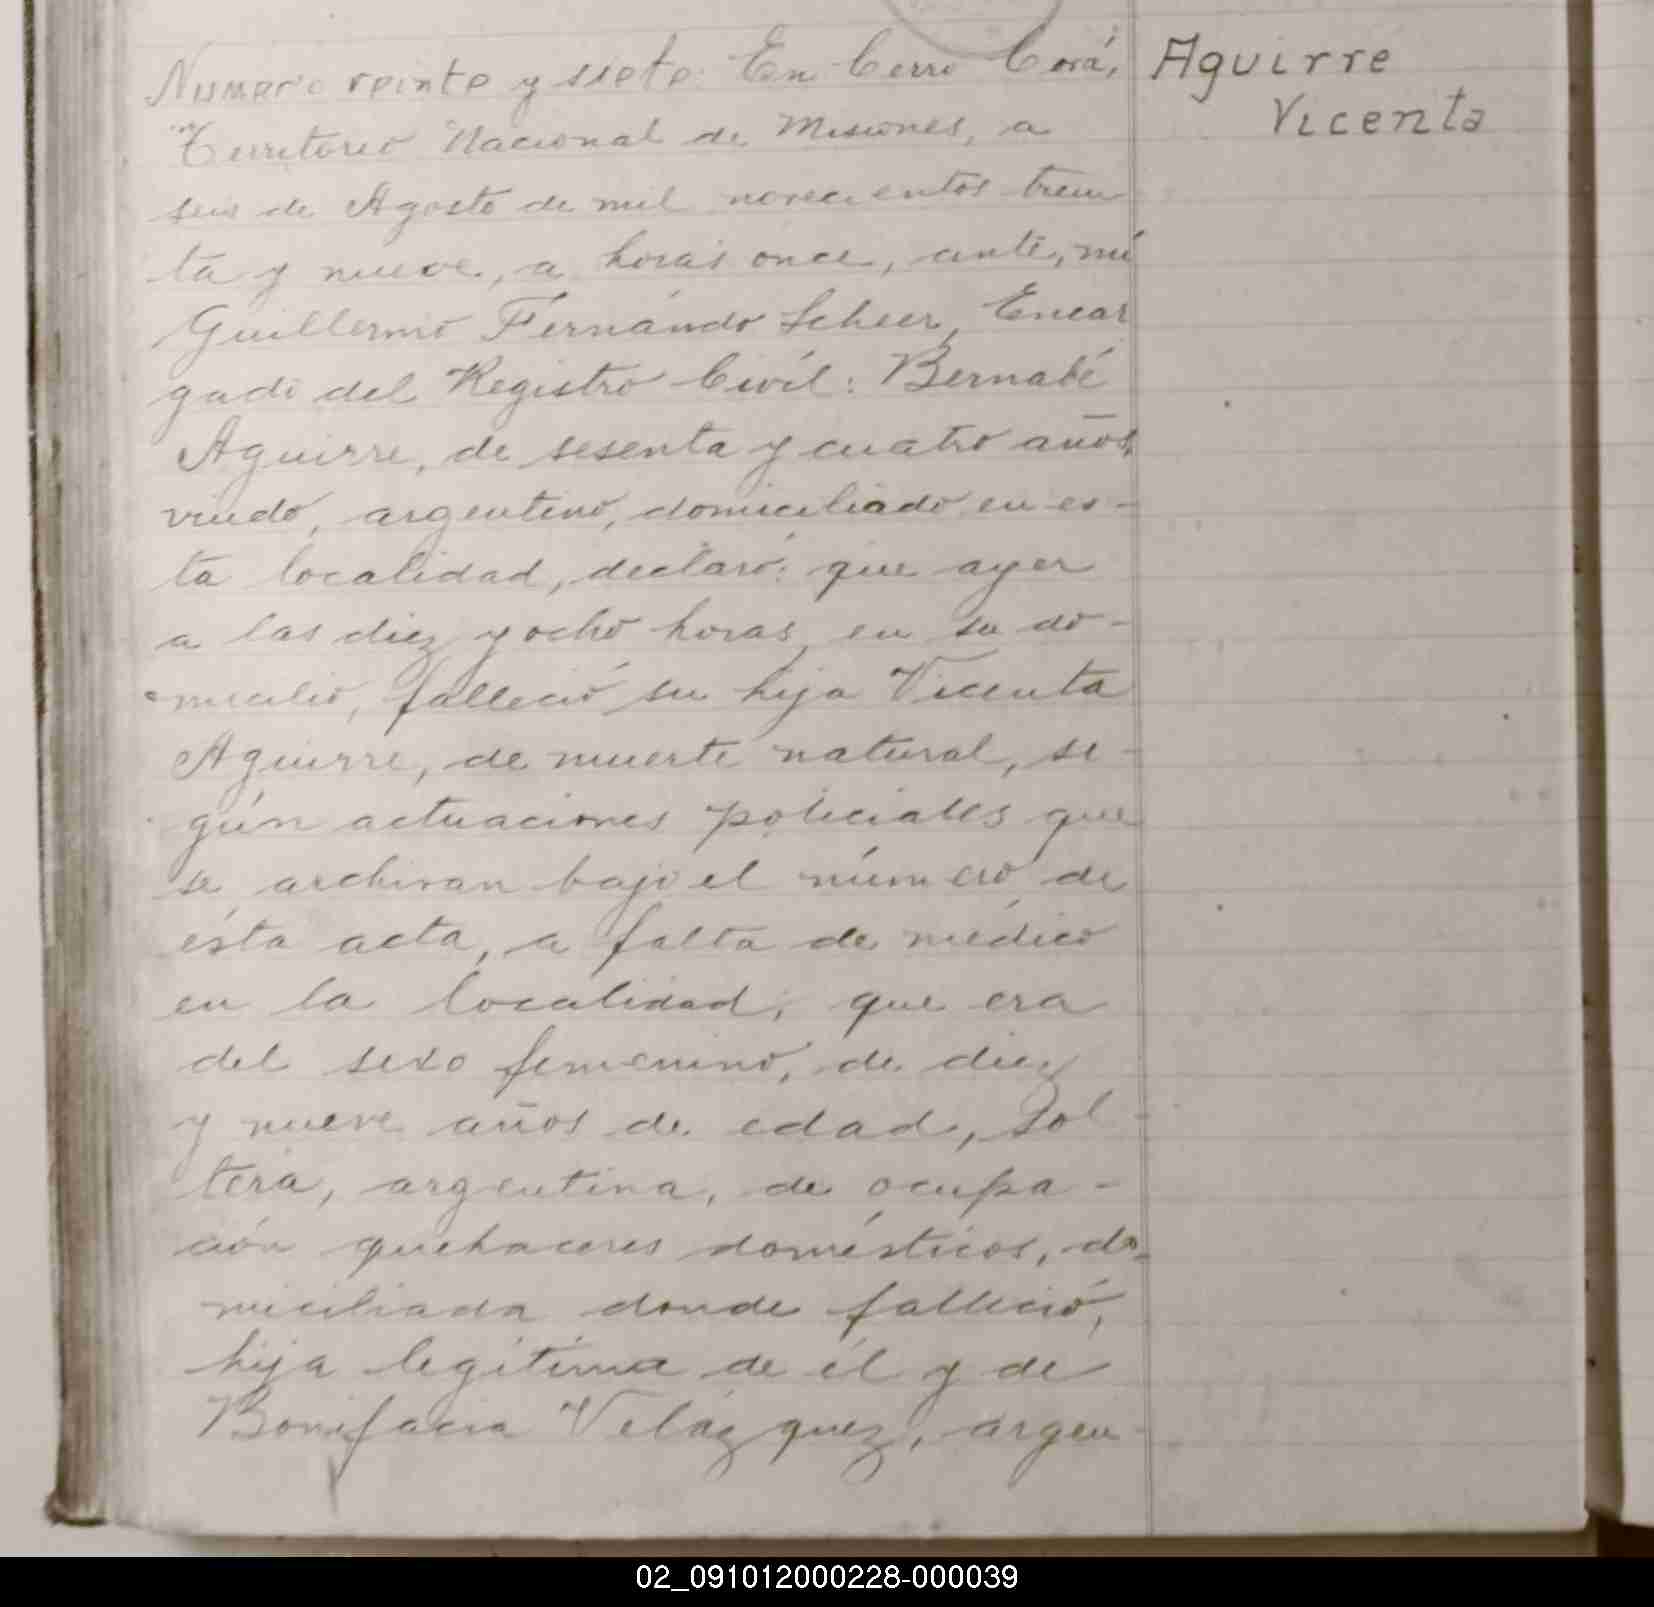 Numero veinte y siete: En Cerro Corá,
Territorio Nacional de Misiones, a
seis de Agosto de mil novecientos trein
ta y nueve, a horas once, ante, mi
Guillermo Fernando Scheer, Encar
gado del Registro Civil: Bernabé
Aguirre, de sesenta y cuatro años,
viudo, argentino, domiciliado en es-
ta localidad, declaró: que ayer
a las diez y ocho horas, en su do-
micilio, falleció su hija Vicenta
Aguirre, de muerte natural, se-
gún actuaciones policiales que
se archivan bajo el número de
ésta acta, a falta de médico
en la localidad; que era
del sexo femenino, de diez
y nueve años de edad, sol-
tera, argentina, de ocupa-
ción quehaceres domésticos, do-
miciliada donde falleció,
hija legítima de él y de
Bonifacia Velázquez, argen-
Aguirre
Vicenta
02_091012000228-000039